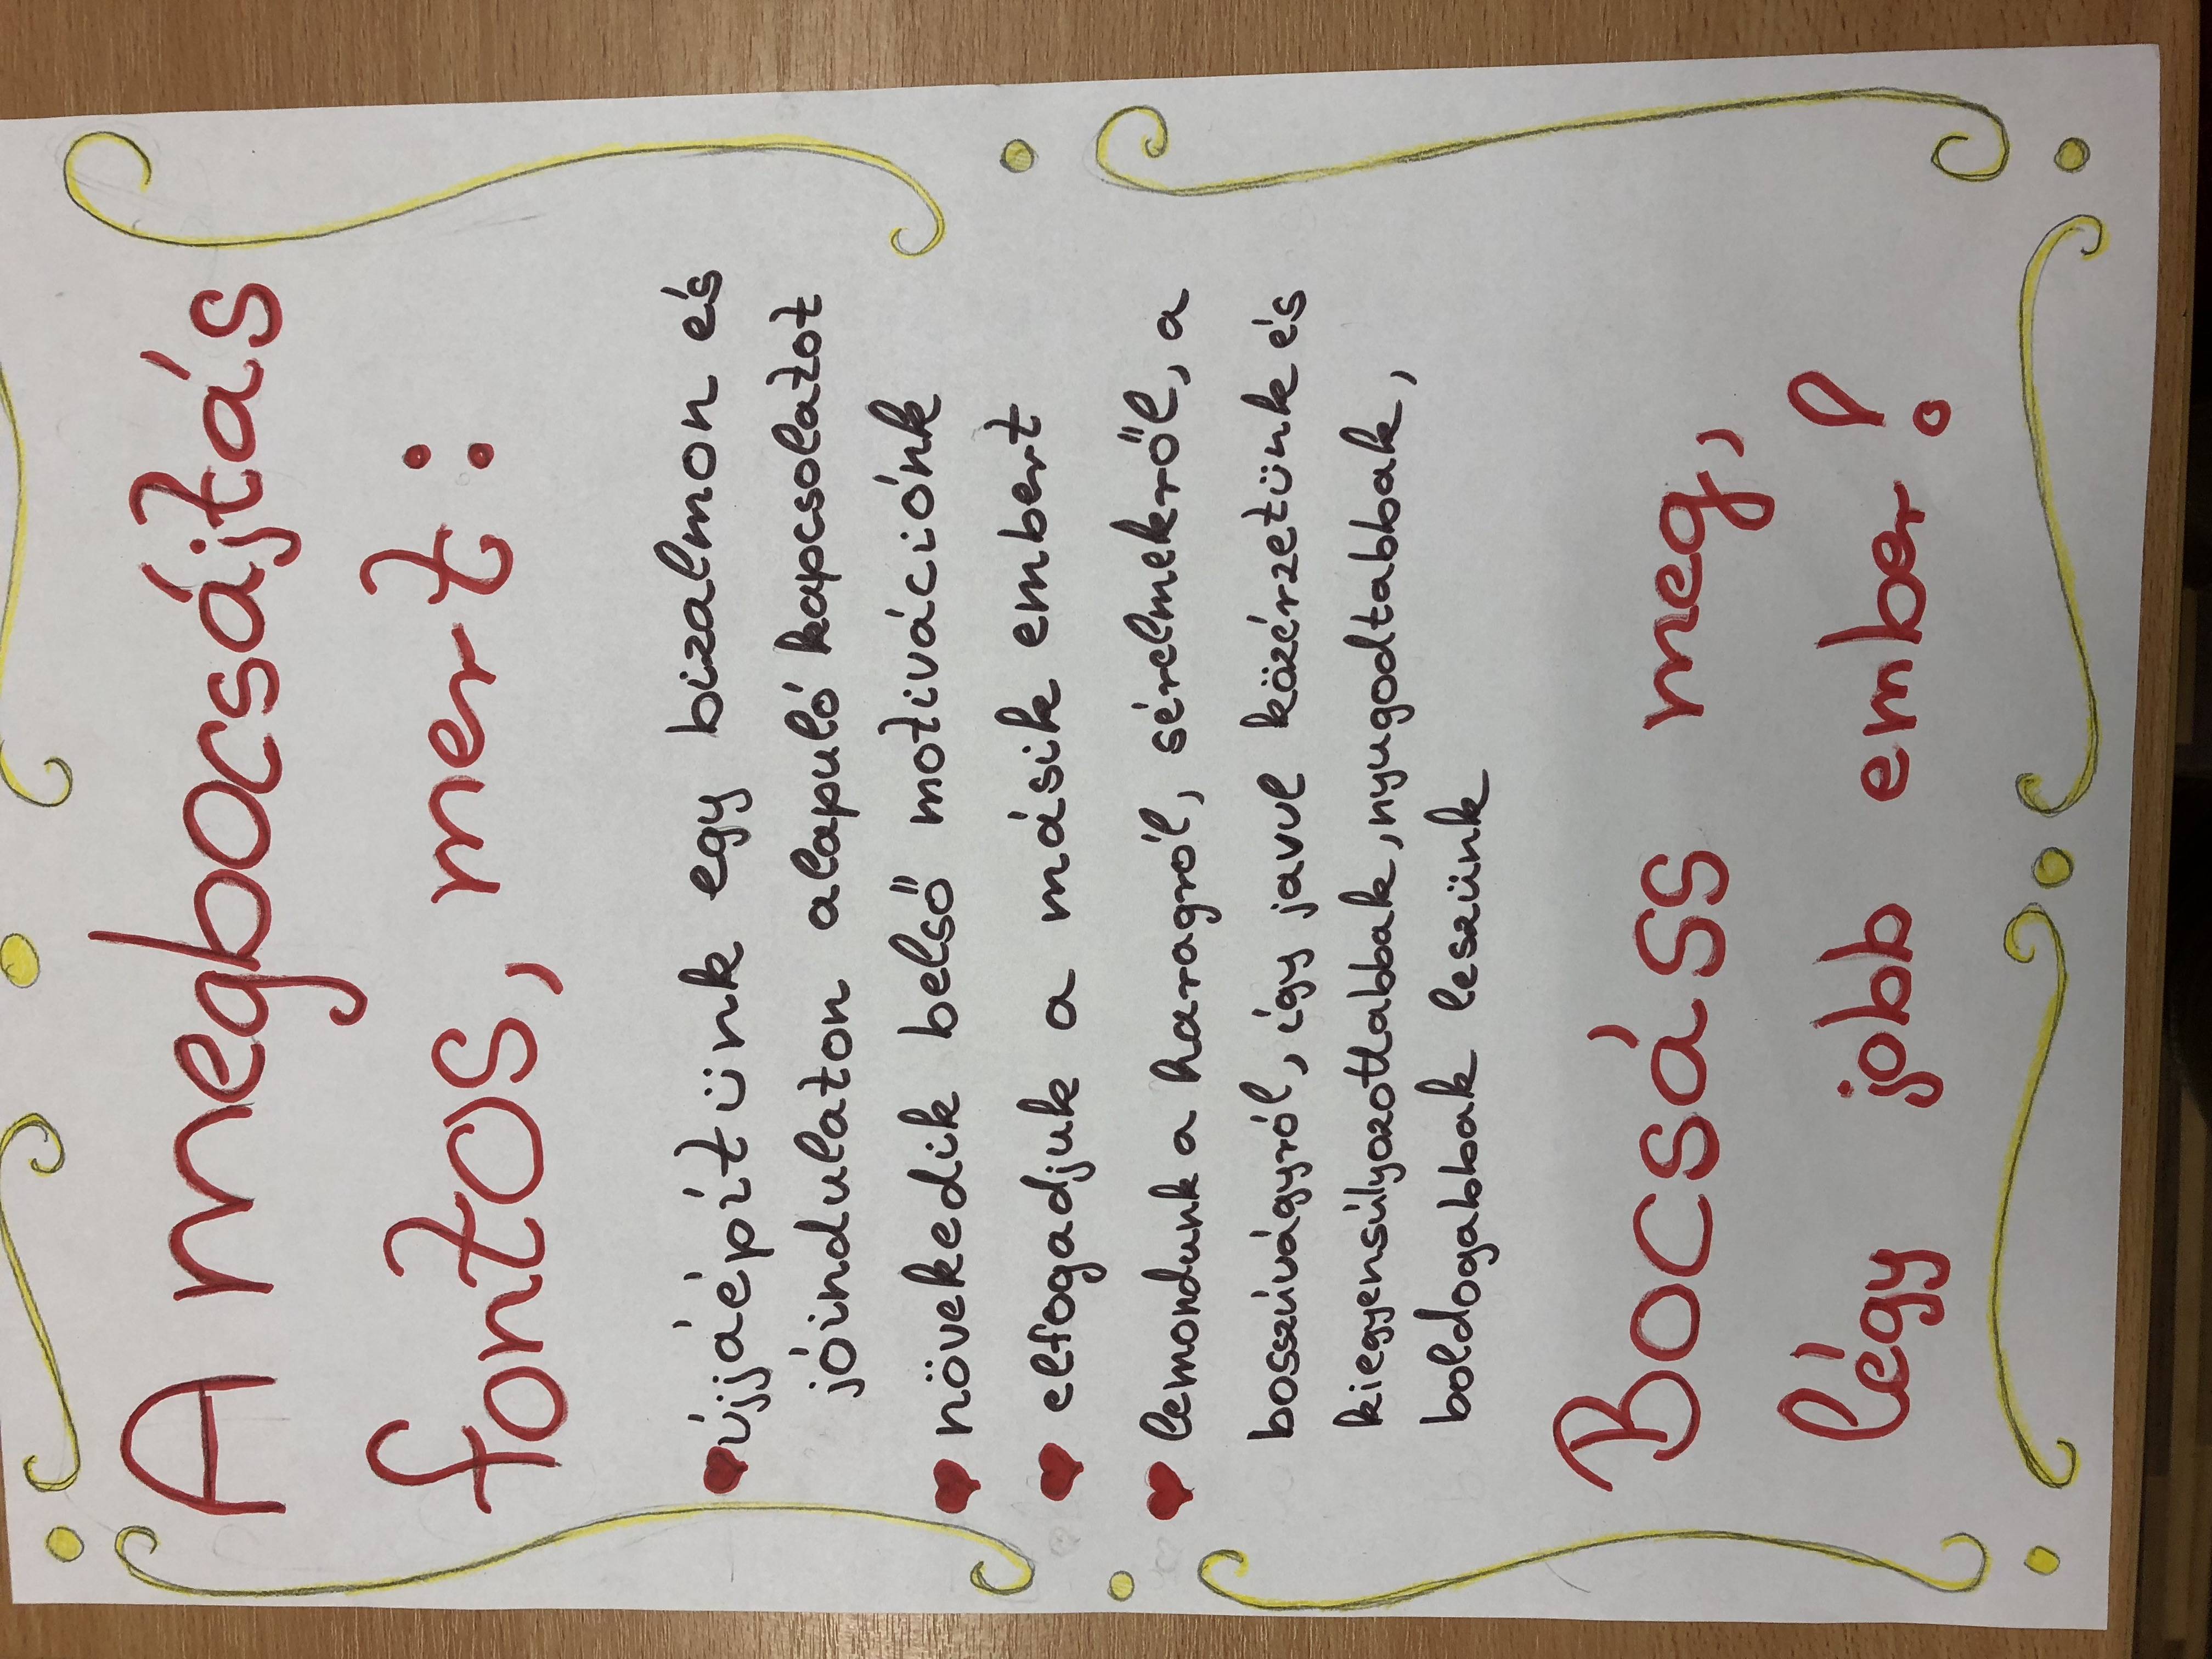 A megbocsájtás
fontos, mert:
újjáépítünk egy bizalmon és
jóindulaton alapuló kapcsolatot
növekedik belső motivációnk
elfogadjuk a másik embert
lemondunk a haragról, sérelmekről, a
bosszúvágyról, így javul közérzetünk és
kiegyensúlyozottabbak, nyugodtabbak,
boldogabbak leszünk
Bocsáss meg,
légy jobb ember!